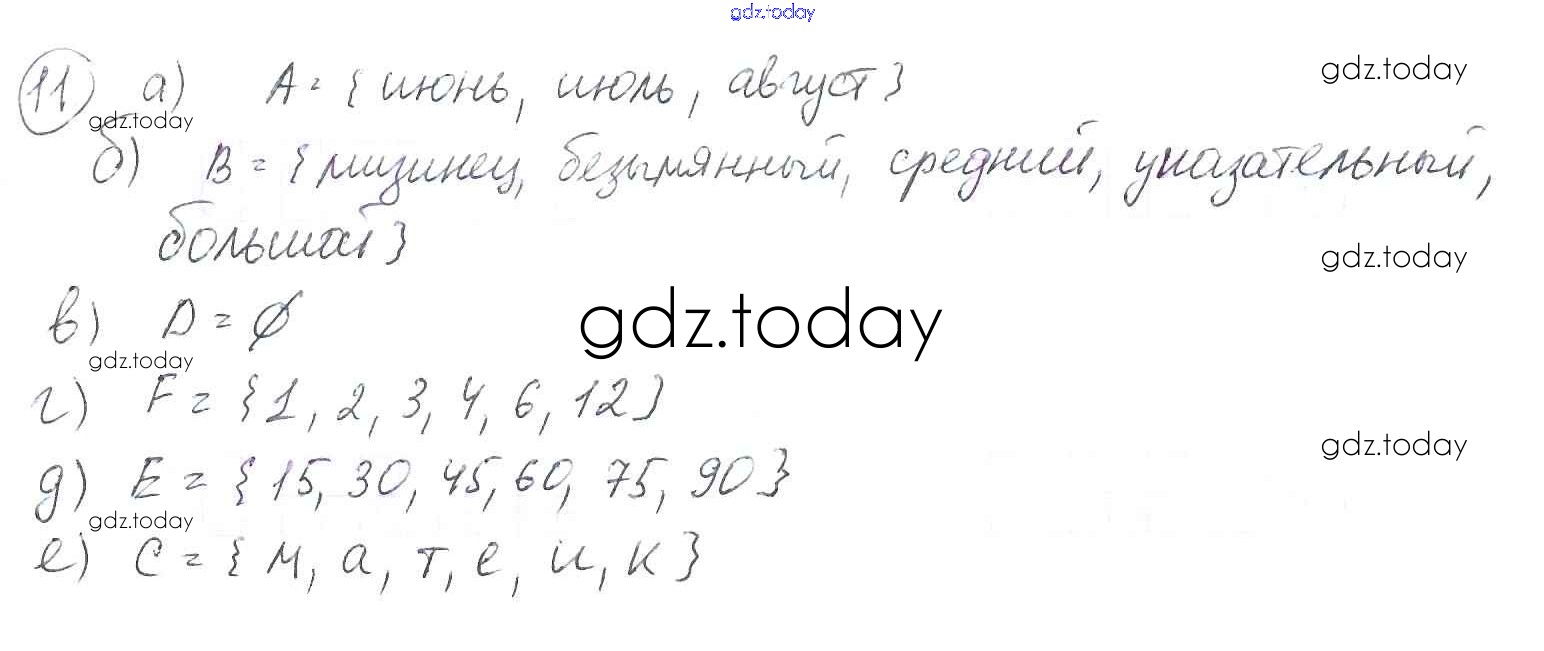 gdz.today
11 а) A = {июнь, июль, август}
gdz.today
gdz.today
б) B = {мизинец, безымянный, средний, указательный,
большой}
gdz.today
в) D = ∅
gdz.today
gdz.today
г) F = {1, 2, 3, 4, 6, 12}
gdz.today
д) E = {15, 30, 45, 60, 75, 90}
gdz.today
е) C = {м, а, т, е, и, к}